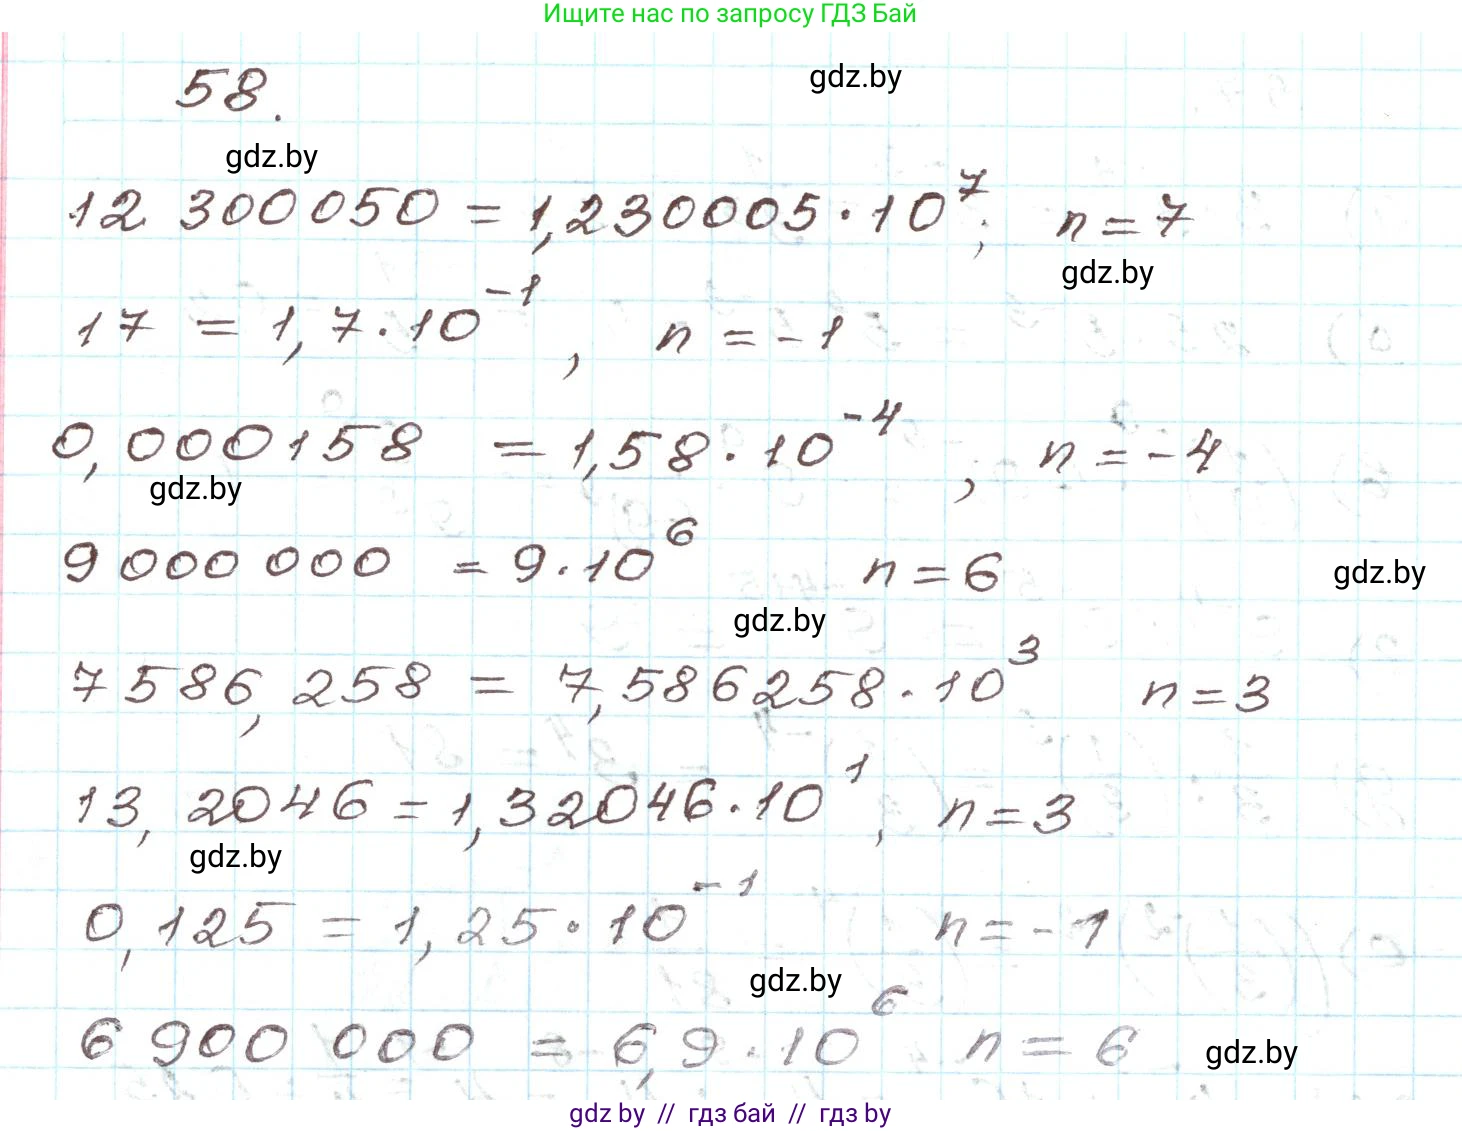 Ищите нас по запросу ГДЗ Бай
58.
gdz.by
gdz.by
12 300050 = 1,230005·10⁷; n=7
gdz.by
17 = 1,7·10⁻¹, n=-1
0,000158 = 1,58·10⁻⁴; n=-4
gdz.by
9000 000 = 9·10⁶ n=6
gdz.by
gdz.by
7586,258 = 7,586258·10³ n=3
13,2046=1,32046·10¹, n=3
gdz.by
0,125 = 1,25·10⁻¹ n=-1
gdz.by
6 900 000 = 6,9·10⁶ n=6
gdz.by
gdz.by // гдз бай // гдз by